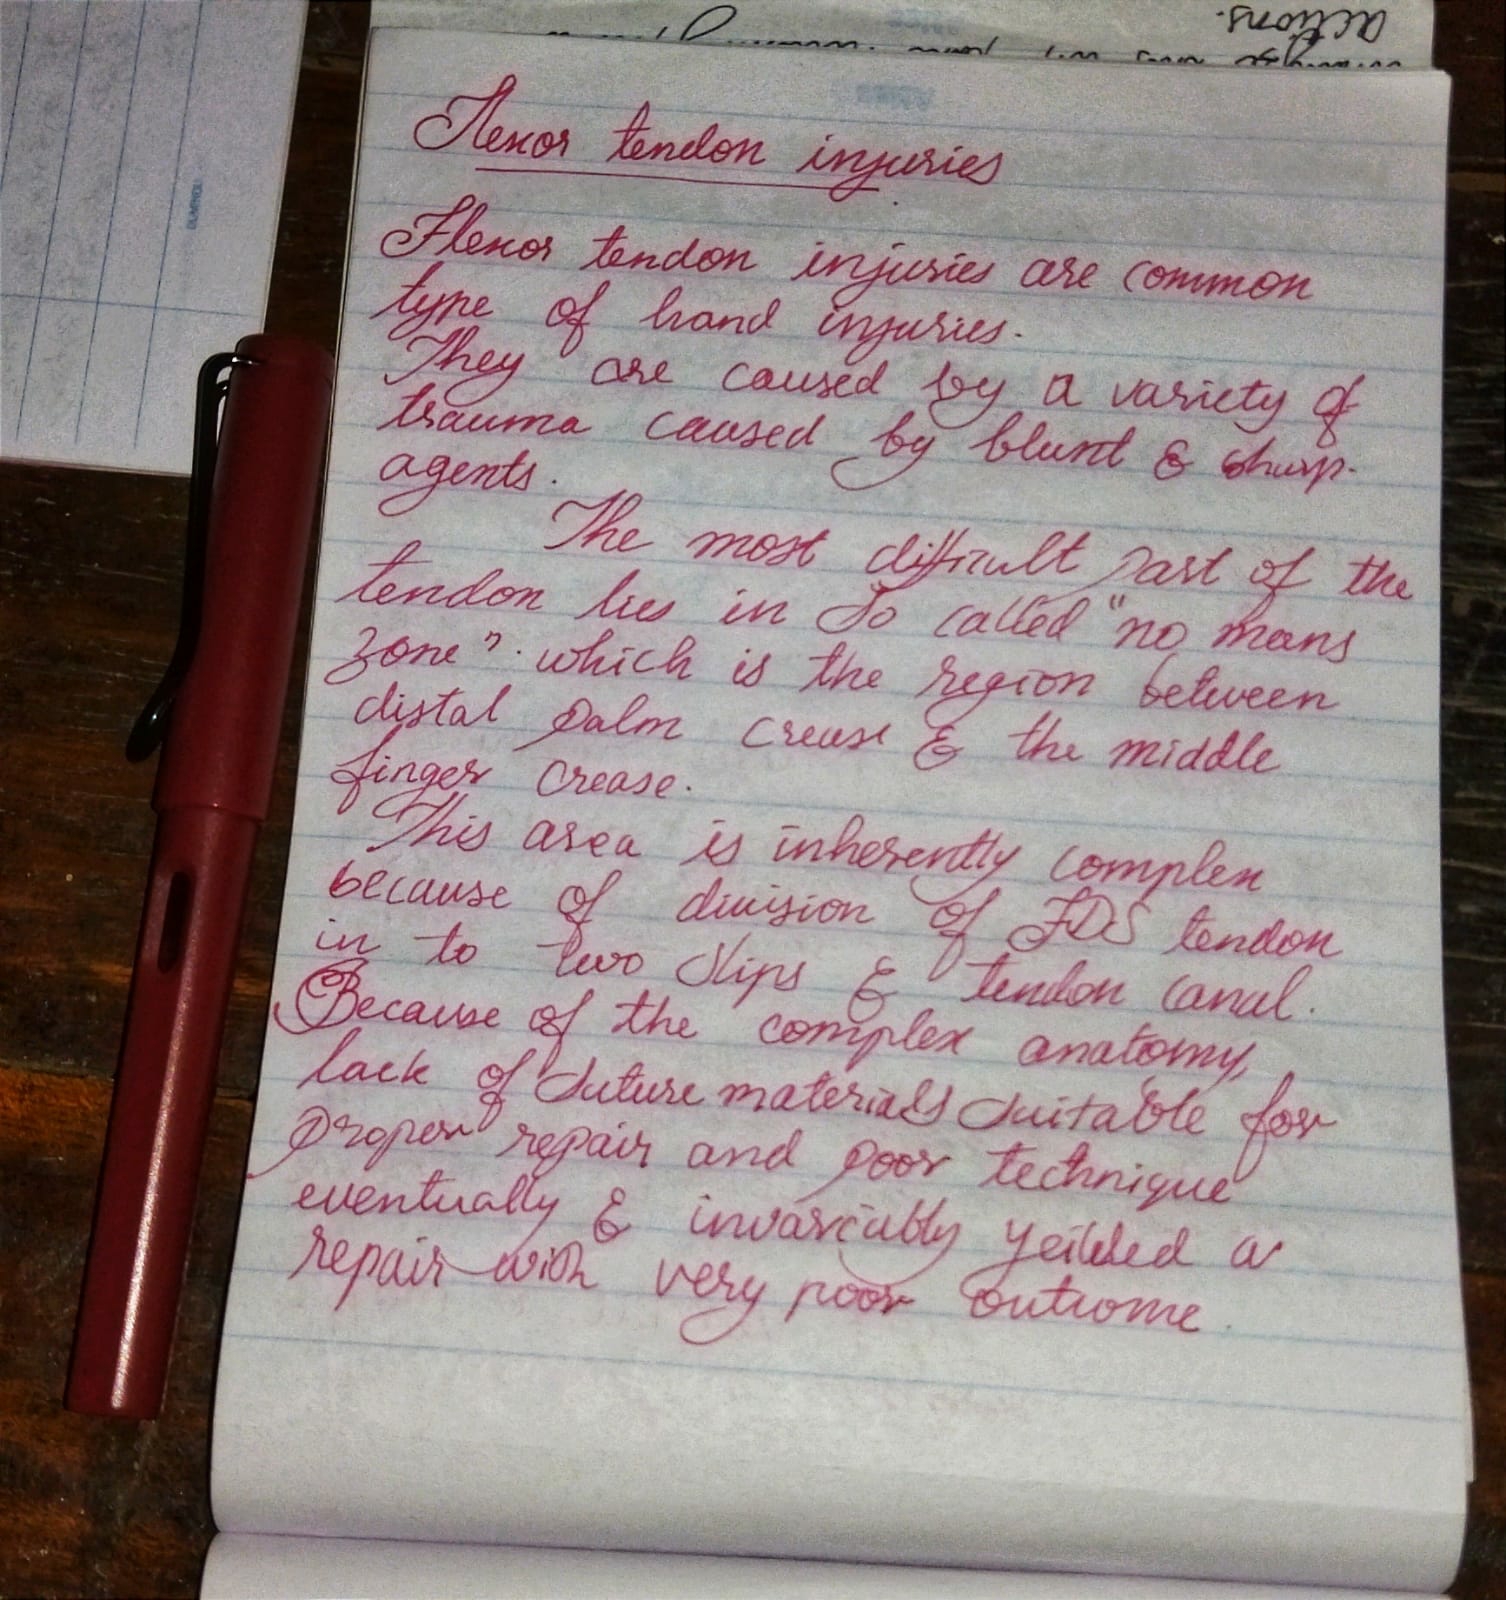 actions.
Flexor tendon injuries
Flexor tendon injuries are common
type of hand injuries.
They are caused by a variety of
trauma caused by blunt & sharp
agents.
The most difficult part of the
tendon lies in so called "no mans
zone". which is the region between
distal palm crease & the middle
finger crease.
This area is inherently complex
because of division of FDS tendon
in to two slips & tendon canal.
Because of the complex anatomy,
lack of suture materials suitable for
proper repair and poor technique
eventually & invariably yeilded a
repair with very poor outcome.